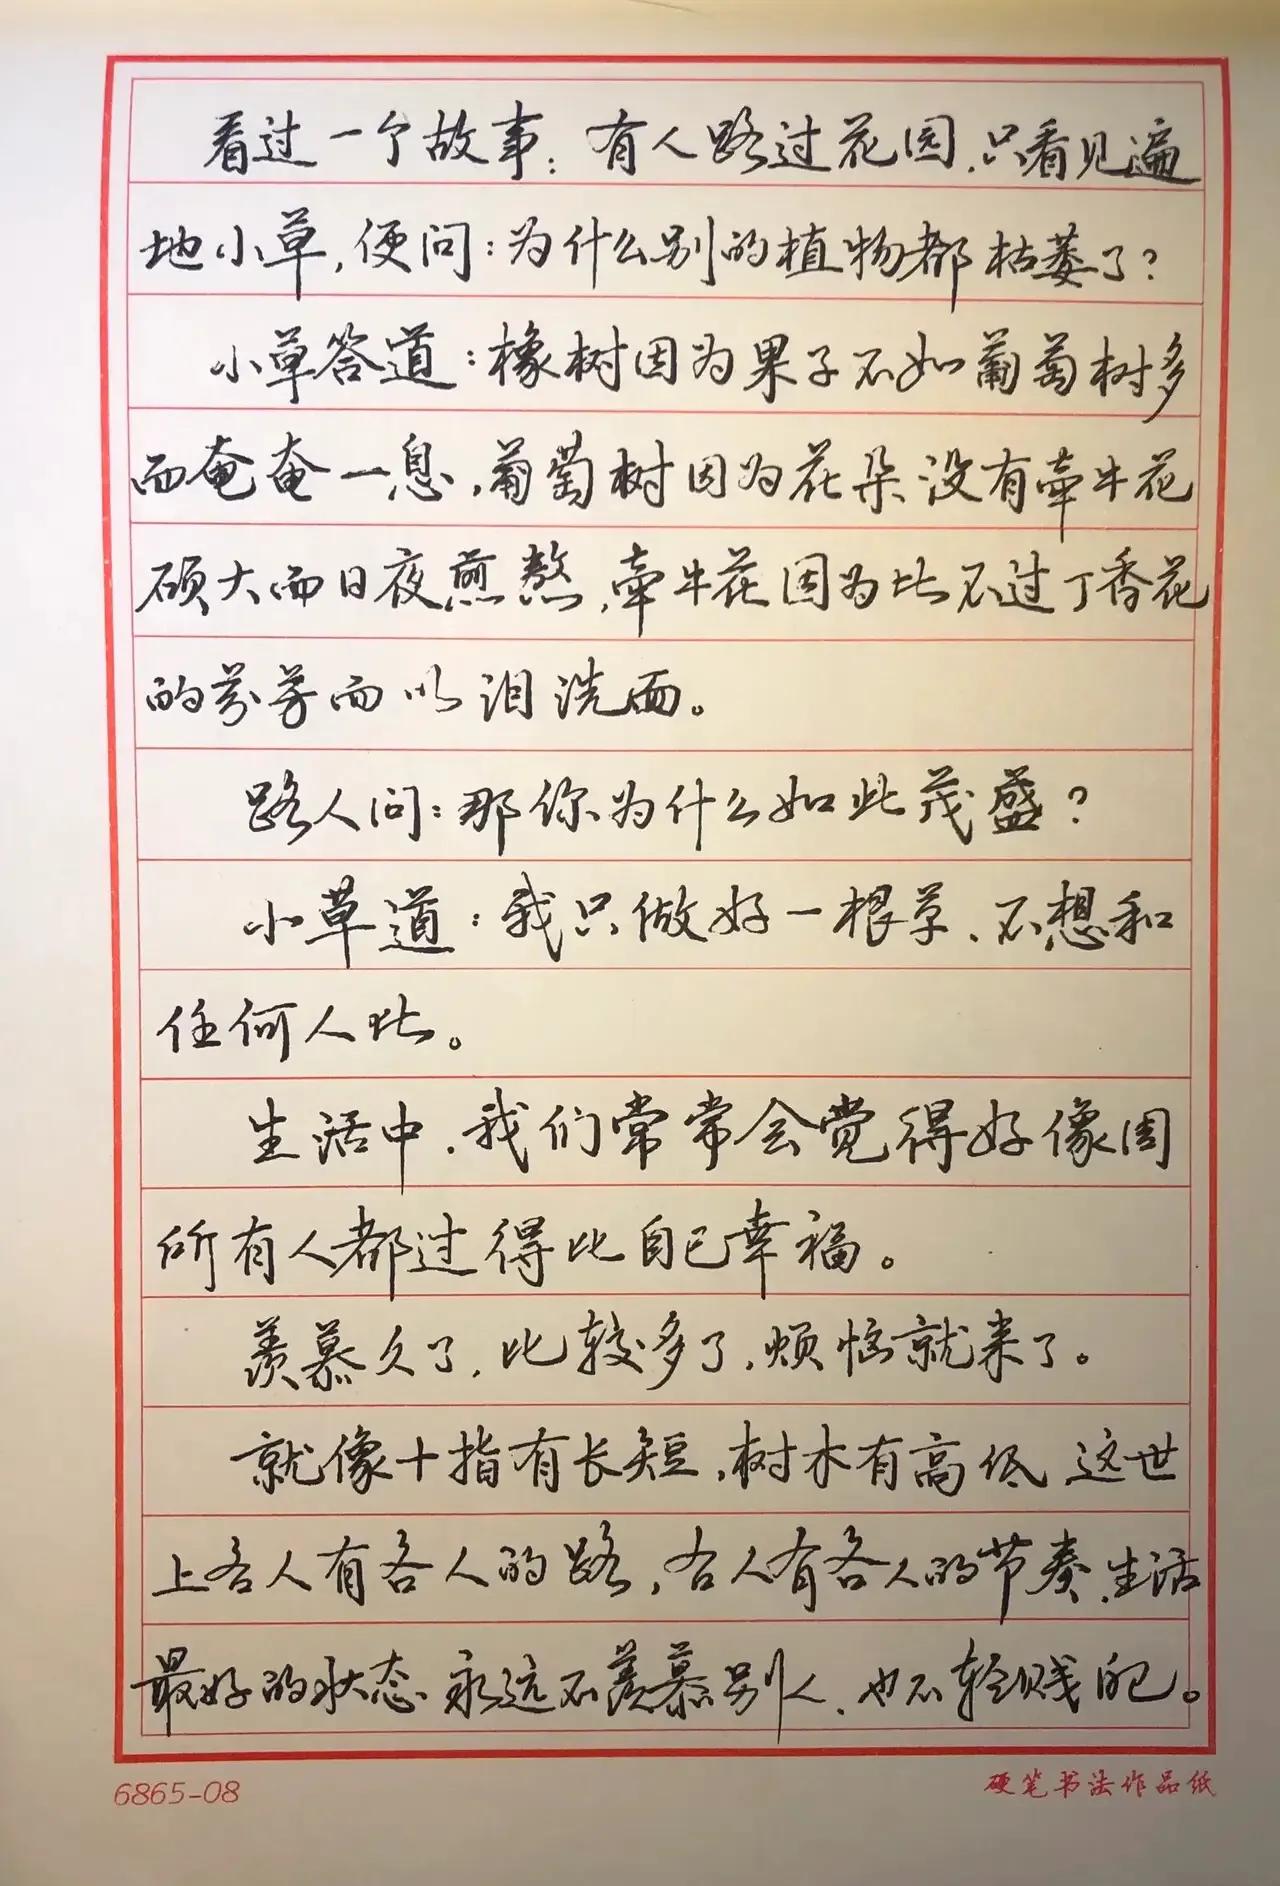 看过一个故事：有人路过花园，只看见遍
地小草，便问：为什么别的植物都枯萎了？
小草答道：橡树因为果子不如葡萄树多
而奄奄一息，葡萄树因为花朵没有牵牛花
硕大而日夜煎熬，牵牛花因为比不过丁香花
的芬芳而以泪洗面。
路人问：那你为什么如此茂盛？
小草道：我只做好一根草，不想和
任何人比。
生活中，我们常常会觉得好像周
所有人都过得比自己幸福。
羡慕久了，比较多了，烦恼就来了。
就像十指有长短，树木有高低，这世
上各人有各人的路，各人有各人的节奏，生活
最好的状态，永远不羡慕别人，也不轻贱自己。
6865-08
硬笔书法作品纸